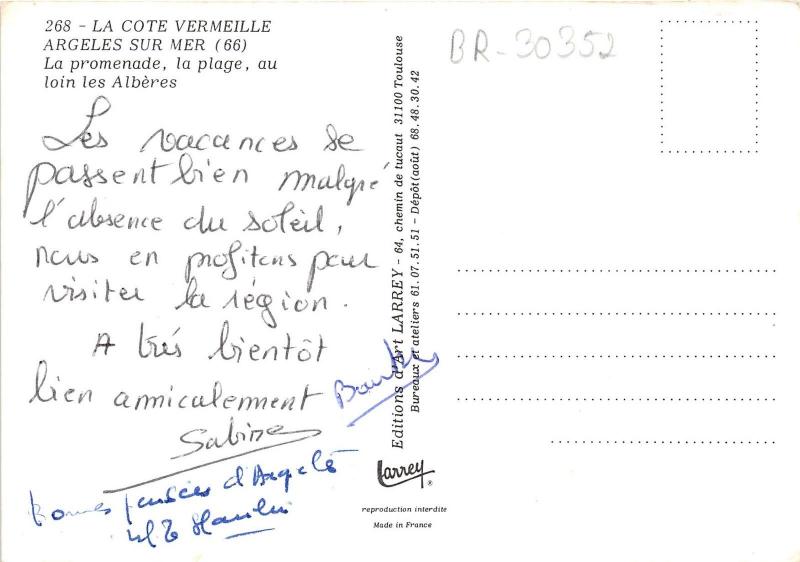 268 - LA COTE VERMEILLE
ARGELES SUR MER (66)
La promenade, la plage, au
loin les Albères
Les vacances se
passent bien malgré
l'absence du soleil,
nous en profitons pour
visiter la région.
A très bientôt
bien amicalement
Sabine
Bonnes pensées d'Argelès
Editions d'Art LARREY - 64, chemin de tucaut 31100 Toulouse
Bureaux et ateliers 61.07.51.51 - Dépôt (août) 68.48.30.42
Larrey ®
reproduction interdite
Made in France
BR-30352